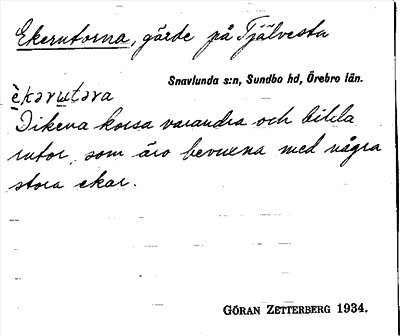 Ekerutorna, gärde på Tjälvesta
Snavlunda s:n, Sundbo hd, Örebro län.
èkərutəra
Dikena korsa varandra och bilda
rutor, som äro bevuxna med några
stora ekar.
GÖRAN ZETTERBERG 1934.